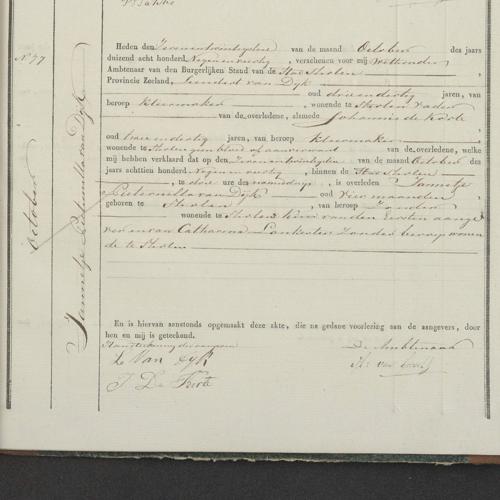 N. 77
October
Jannetje Pieternella van Dijk
Heden den Zevenentwintigsten van de maand October des jaars
duizend acht honderd Negenenveertig, verschenen voor mij Wethouder
Ambtenaar van den Burgerlijken Stand van de Stad Tholen,
Provincie Zeeland, Leendert van Dijk
oud drieendertig jaren, van
beroep kleermaker, wonende te Tholen vader
van de overledene, alsmede Johannis de
oud jaren, van beroep kleermaker
wonende te Tholen geen bloed of aanverwant van de overledene, welke
mij hebben verklaard dat op den Zevenentwintigsten van de maand October des
jaars achttien honderd Negenenveertig, binnen de Stad Tholen
, te drie ure des namiddags, is overleden Jannetje
Pieternella van Dijk oud vier maanden,
geboren te Tholen, van beroep Zonder
wonende te Tholen kind van den Eersten aange
ver en van Catharina Lankester Zonder beroep wonen
de te Tholen
En is hiervan aanstonds opgemaakt deze akte, die na gedane voorlezing aan de aangevers, door
hen en mij is geteekend.
De Ambtenaar
L Van Dyk
J. De